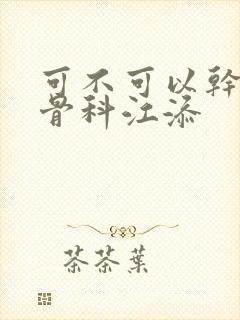 可不可以幹
骨科江添
茶茶葉